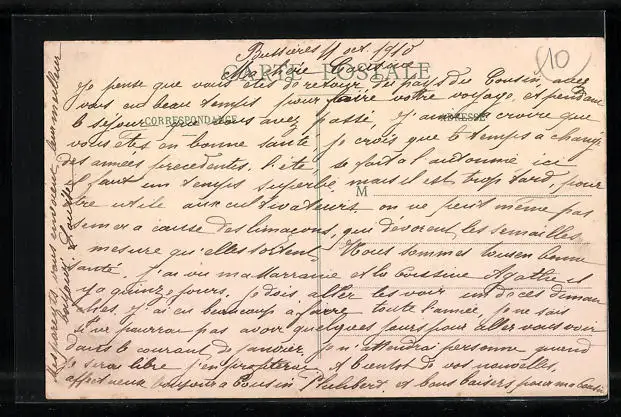 Bussières 11 oct. 1910
(10
Ma chère Cousine
CARTE POSTALE
Je pense que vous êtes de retour du pays du Cousin, avez
vous eu beau temps pour faire votre voyage, et pendant
le séjour que vous avez passé, J'aime à croire que
CORRESPONDANCE
ADRESSE
vous êtes en bonne santé je crois que le temps a changé
des années précédentes, l'été se fait à l'automne ici
il faut un temps superbe, mais il est trop tard, pour
M
être utile aux cultivateurs. on ne peut même pas
semer à cause des limaçons, qui dévorent les semailles,
à mesure qu'elles sortent. Nous sommes tous en bonne
santé, j'ai vu ma marraine et la cousine Agathe il
y a quinze jours, je dois aller les voir un de ces diman
ches. j'ai eu beaucoup à faire toute l'année, je ne sais
si je pourrai pas avoir quelques jours pour aller vous voir
dans le courant de janvier, je n'attendrai personne, quand
je serai libre j'en profiterai A bientôt de vos nouvelles,
affectueux bonjours à Cousin Philibert, et bons baisers pour ma cousine
Mes parents vous envoient leur meilleur
bonjour